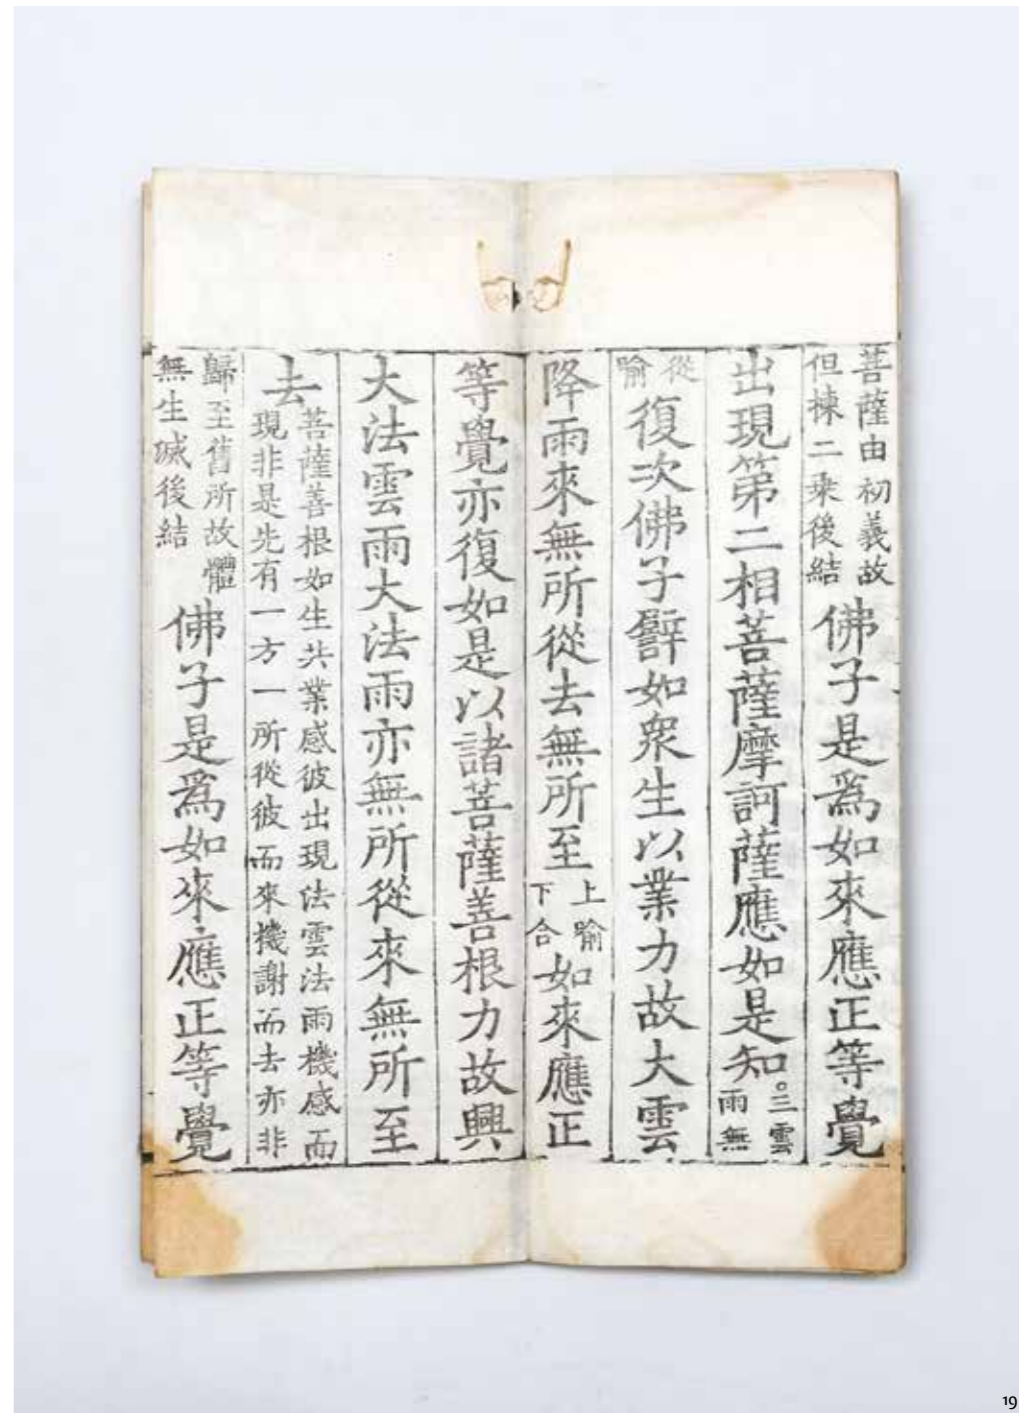 菩薩由初義故
但揀二乗後結佛子是爲如來應正等覺
出現第二相菩薩摩訶薩應如是知。三雲
雨無
從
喻復次佛子譬如衆生以業力故大雲
降雨來無所從去無所至上喻
下合如來應正
等覺亦復如是以諸菩薩善根力故興
大法雲雨大法雨亦無所從來無所至
去菩薩善根如生共業感彼出現法雲法雨機感而
現非是先有一方一所從彼而來機謝而去亦非
歸至舊所故體
無生滅後結佛子是爲如來應正等覺
19